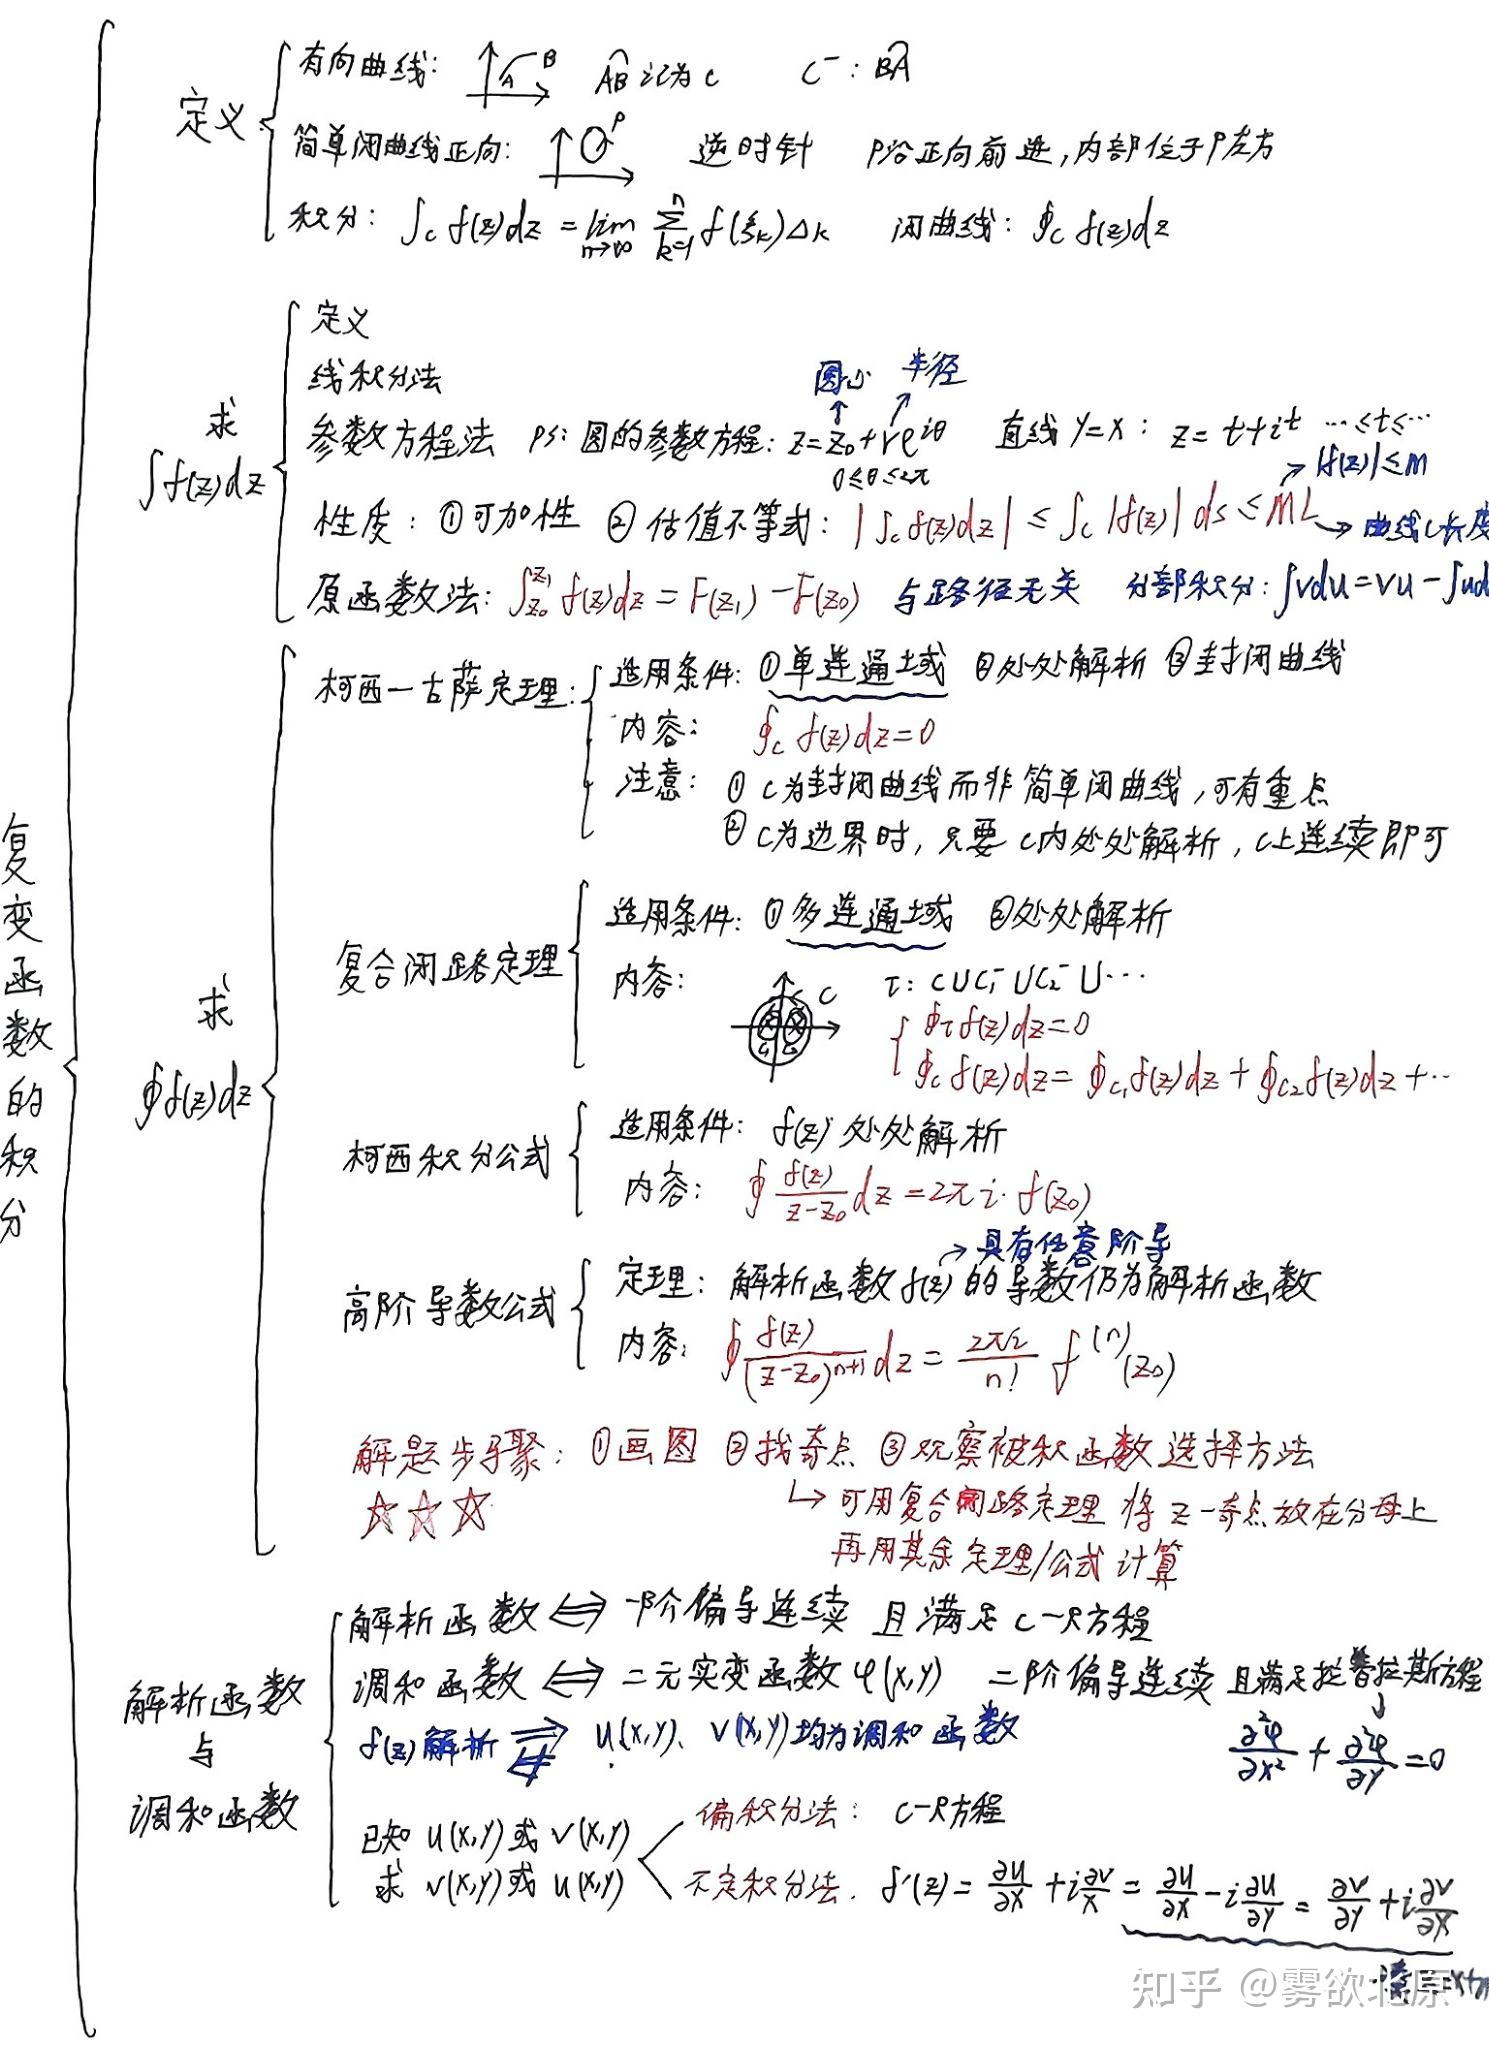 复变函数的积分
定义
有向曲线: A B AB记为C C⁻: BA
简单闭曲线正向: P 逆时针 P沿正向前进,内部位于P左方
积分: ∫c f(z)dz = lim n→∞ Σ k=1 n f(ξk)Δk 闭曲线: ∮c f(z)dz
求 ∫f(z)dz
定义
线积分法
圆心 半径
参数方程法 PS: 圆的参数方程: z=z₀+re^{iθ} 直线y=x: z=t+it …≤t≤…
0≤θ≤2π
|f(z)|≤M
性质: ①可加性 ②估值不等式: |∫c f(z)dz| ≤ ∫c |f(z)| ds ≤ ML → 曲线C长度
原函数法: ∫_{z₀}^{z₁} f(z)dz = F(z₁) - F(z₀) 与路径无关 分部积分: ∫vdu=vu-∫ud
求 ∮f(z)dz
柯西一古萨定理:
适用条件: ①单连通域 ②处处解析 ③封闭曲线
内容: ∮c f(z)dz=0
注意: ①C为封闭曲线而非简单闭曲线,可有重点
②C为边界时,只要C内处处解析,C上连续即可
复合闭路定理
适用条件: ①多连通域 ②处处解析
内容: C τ: C∪C₁⁻∪C₂⁻∪…
∮τ f(z)dz=0
∮c f(z)dz=∮c₁ f(z)dz+∮c₂ f(z)dz+…
柯西积分公式
适用条件: f(z) 处处解析
内容: ∮ f(z)/(z-z₀) dz=2πi·f(z₀)
→具有任意阶导
高阶导数公式
定理: 解析函数f(z)的导数仍为解析函数
内容: ∮ f(z)/(z-z₀)^{n+1} dz = 2πi/n! f^{(n)}(z₀)
解题步骤: ①画图 ②找奇点 ③观察被积函数选择方法
☆☆☆
↳可用复合闭路定理 将z-奇点放在分母上
再用其余定理/公式计算
解析函数与调和函数
解析函数⇔一阶偏导连续 且满足C-R方程
调和函数⇔二元实变函数φ(x,y) 二阶偏导连续 且满足拉普拉斯方程
f(z)解析 ⇒ ⇍ u(x,y)、v(x,y)均为调和函数 ∂²φ/∂x² + ∂²φ/∂y =0
已知 u(x,y)或v(x,y)
求 v(x,y)或u(x,y)
偏积分法: C-R方程
不定积分法. f'(z)=∂u/∂x+i∂v/x=∂u/∂x-i∂u/∂y=∂v/∂y+i∂v/∂x
知乎 @雾欲北原